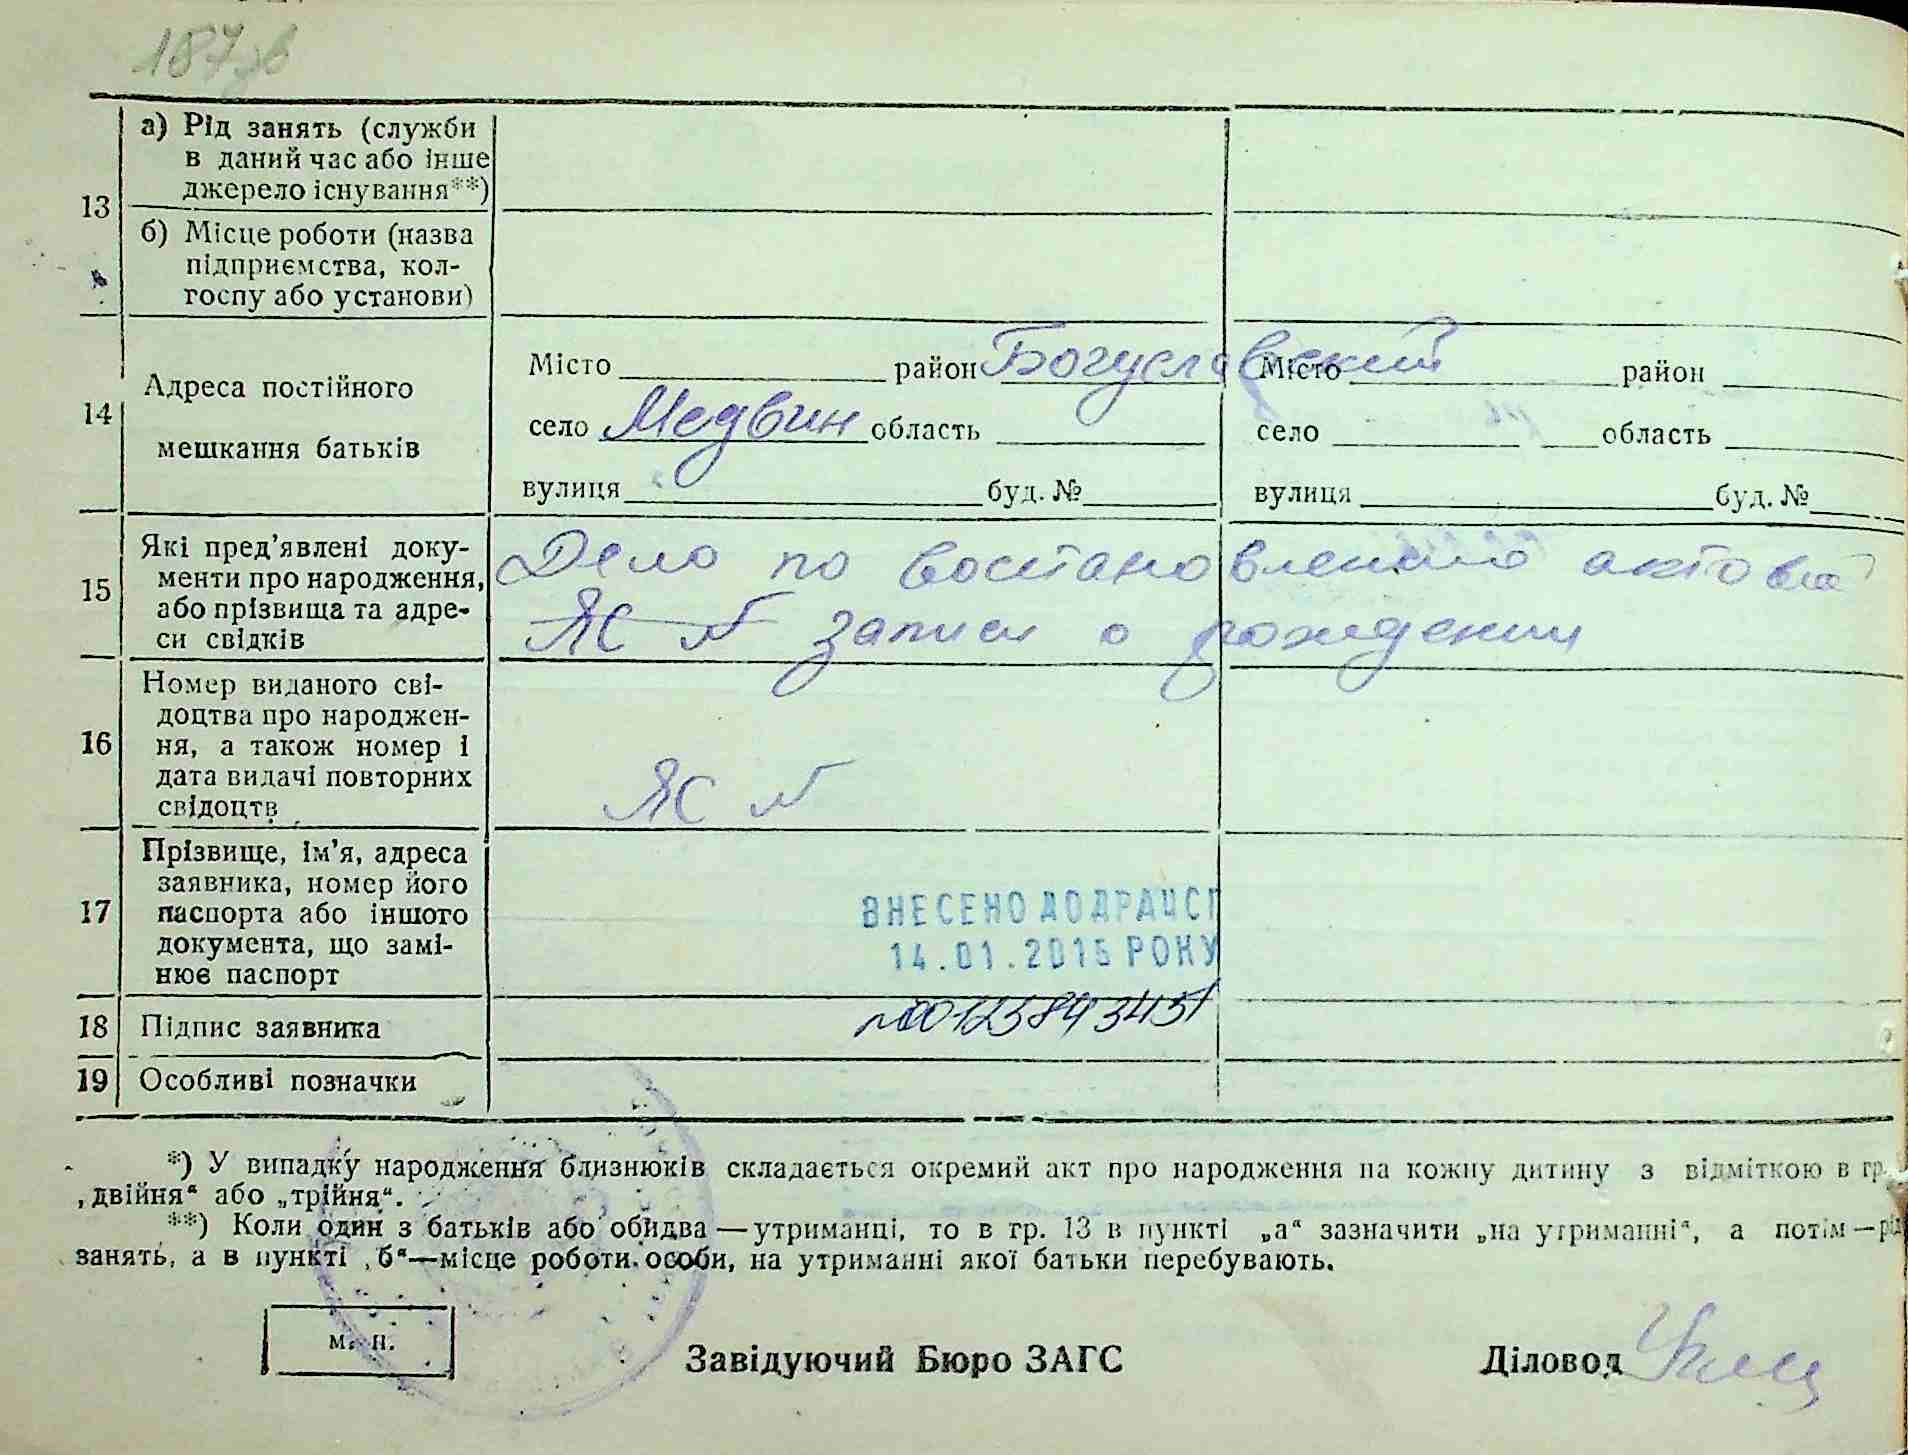 187зв
а) Рід занять (служби
в даний час або інше
джерело існування**)
13
б) Місце роботи (назва
підприємства, кол-
госпу або установи)
Місто район Богуславский Місто район
Адреса постійного
14
село Медвин область село область
мешкання батьків
вулиця буд. № вулиця буд. №
Які пред’явлені доку-
менти про народження,
15
або прізвища та адре-
си свідків
Дело по востановлению актовой
ЯС № записи о рождении
Номер виданого сві-
доцтва про народжен-
16 ня, а також номер і
дата видачі повторних
свідоцтв
ЯС №
Прізвище, ім’я, адреса
заявника, номер його
17 паспорта або іншого
документа, що замі-
нює паспорт
ВНЕСЕНО ДО ДРАЦСГ
14.01.2015 РОКУ
18 Підпис заявника
№00123843451
19 Особливі позначки
*) У випадку народження близнюків складається окремий акт про народження на кожну дитину з відміткою в гр.
„двійня“ або „трійня“.
**) Коли один з батьків або обидва — утриманці, то в гр. 13 в пункті „а“ зазначити „на утриманні“, а потім — рід
занять, а в пункті „б“—місце роботи особи, на утриманні якої батьки перебувають.
М. П.
Завідуючий Бюро ЗАГС Діловод